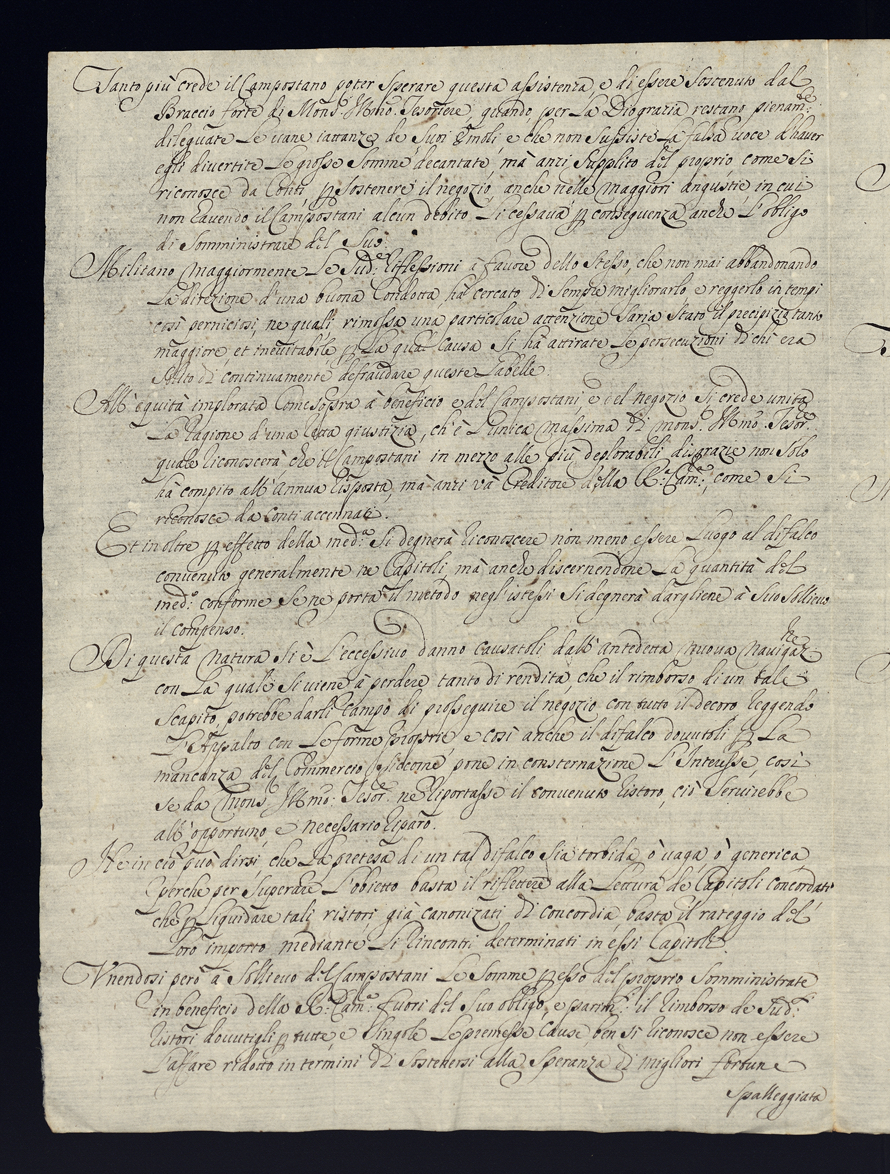 Tanto più crede il Campostano poter Sperare questa assistenza, e di essere Sostenuto dal
Braccio forte di Mons.r Ill.mo Tesoriere, quando, per La Dio grazia restano pienam.te
dileguate Le vane iattanze de Suoi Emoli e che non Sussiste La falsa voce d'haver
egli divertite Le grosse Somme decantate, mà anzi Supplito del proprio come Si
riconosce da Conti p Sostenere il negozio anche nelle maggiori angustie, in cui
non havendo il Campostani alcun debito Li cessava p conseguenza anche L'obligo
di Somministrare del Suo.
Militano maggiormente Le Sud.e riflessioni à favore dello Stesso, che non mai abbandonando
La direzione d'una buona Condotta hà cercato di Sempre migliorarlo, e reggerlo in tempi
così perniciosi, ne quali rimossa una particolare attenzione Saria Stato il precipizio tanto
maggiore et inevitabile p La qual Causa Si hà attirate Le persecuzioni di chi era
Solito di continuamente defraudare queste Gabelle.
All'equità implorata Come Sopra à beneficio e del Campostani e del negozio Si crede unita
La ragione d'una Giustizia, ch'è L'unica massima di Mons.r Ill.mo Tesor.e
quale riconoscerà che il Campostani in mezzo alle più deplorabili disgrazie non Solo
hà compito all'Annua Risposta, mà anzi và Creditore della R.a Cam.a, come Si
riconosce da Conti accennati.
Et inoltre p effetto della med.a Si degnerà riconoscere non meno essere Luogo al difalco
convenuto generalmente ne Capitoli, mà anche discernendone La quantità del
med.o conforme Se ne porta il metodo negl'istessi Si degnerà dargliene à Suo Sollievo
il compenso.
Di questa natura Si è L'eccessivo danno causatoli dall'antedetta nuova Navigaz.ne
con La quale Si viene à perdere tanto di rendita, che il rimborso di un tale
Scapito, potrebbe darli Campo di proseguire il negozio con tutto il decoro reggendo
L'Appalto con Le forme proprie e così anche il difalco dovutoli p La
mancanza del Commercio, Siccome pone in consternazione L'Interesse, così
Se da Mons.r Ill.mo Tesor.e ne riportasse il convenuto ristoro, ciò Servirebbe
all'opportuno, e necessario riparo.
Ne in ciò può dirsi che La pretesa di un tal difalco Sia torbida, ò vaga ò generica,
perche per Superare L'obietto basta il riflettere alla Lettura de Capitoli concordati
che p Liquidare tali ristori, già canonizati di concordia basta il rateggio del
Loro importo mediante Li rincontri determinati in essi Capitoli.
Unendosi però à Sollievo del Campostani Le Somme p esso del proprio Somministrate
in beneficio della R.a Cam.a fuori del Suo obligo, e parim.ti il rimborso de Sud.i
ristori dovutigli p tutte, e Singole Le premesse Cause ben Si riconosce non essere
L'affare ridotto in termini di Sostenersi alla Speranza di migliori fortune
Spalleggiata